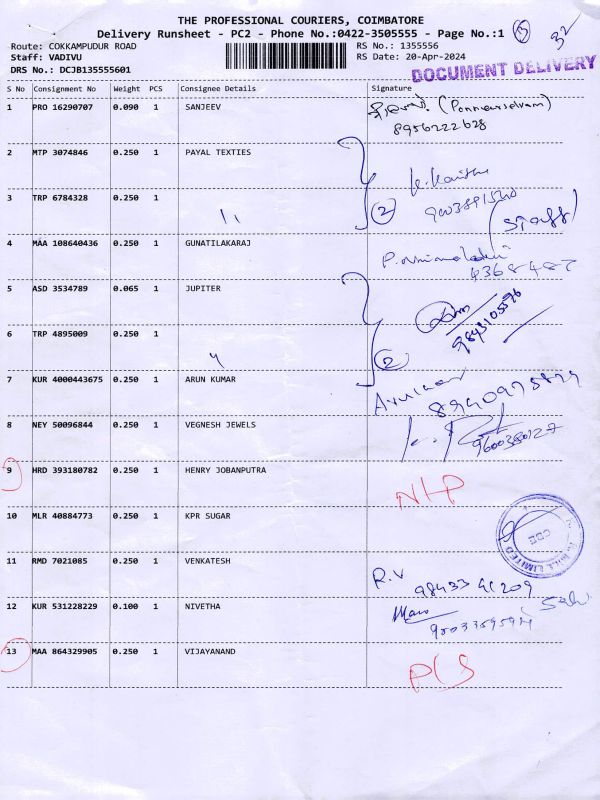 THE PROFESSIONAL COURIERS, COIMBATORE
Delivery Runsheet - PC2 - Phone No.:0422-3505555 - Page No.:1
13
32
Route: COKKAMPUDUR ROAD
RS No.: 1355556
Staff: VADIVU
RS Date: 20-Apr-2024
DRS No.: DCJB135555601
DOCUMENT DELIVERY
S No Consignment No Weight PCS Consignee Details Signature
1 PRO 16290707 0.090 1 SANJEEV
(Ponnarselvam)
8956222628
2 MTP 3074846 0.250 1 PAYAL TEXTIES
3 TRP 6784328 0.250 1
(2)
(Staff)
4 MAA 108640436 0.250 1 GUNATILAKARAJ
5 ASD 3534789 0.065 1 JUPITER
9843105596
6 TRP 4895009 0.250 1
(2)
7 KUR 4000443675 0.250 1 ARUN KUMAR
8 NEY 50096844 0.250 1 VEGNESH JEWELS
9600380127
9 HRD 393180782 0.250 1 HENRY JOBANPUTRA
N/P
10 MLR 40884773 0.250 1 KPR SUGAR
MILL LIMITED
11 RMD 7021085 0.250 1 VENKATESH
R.V
98433 41209
12 KUR 531228229 0.100 1 NIVETHA
13 MAA 864329905 0.250 1 VIJAYANAND
P/S